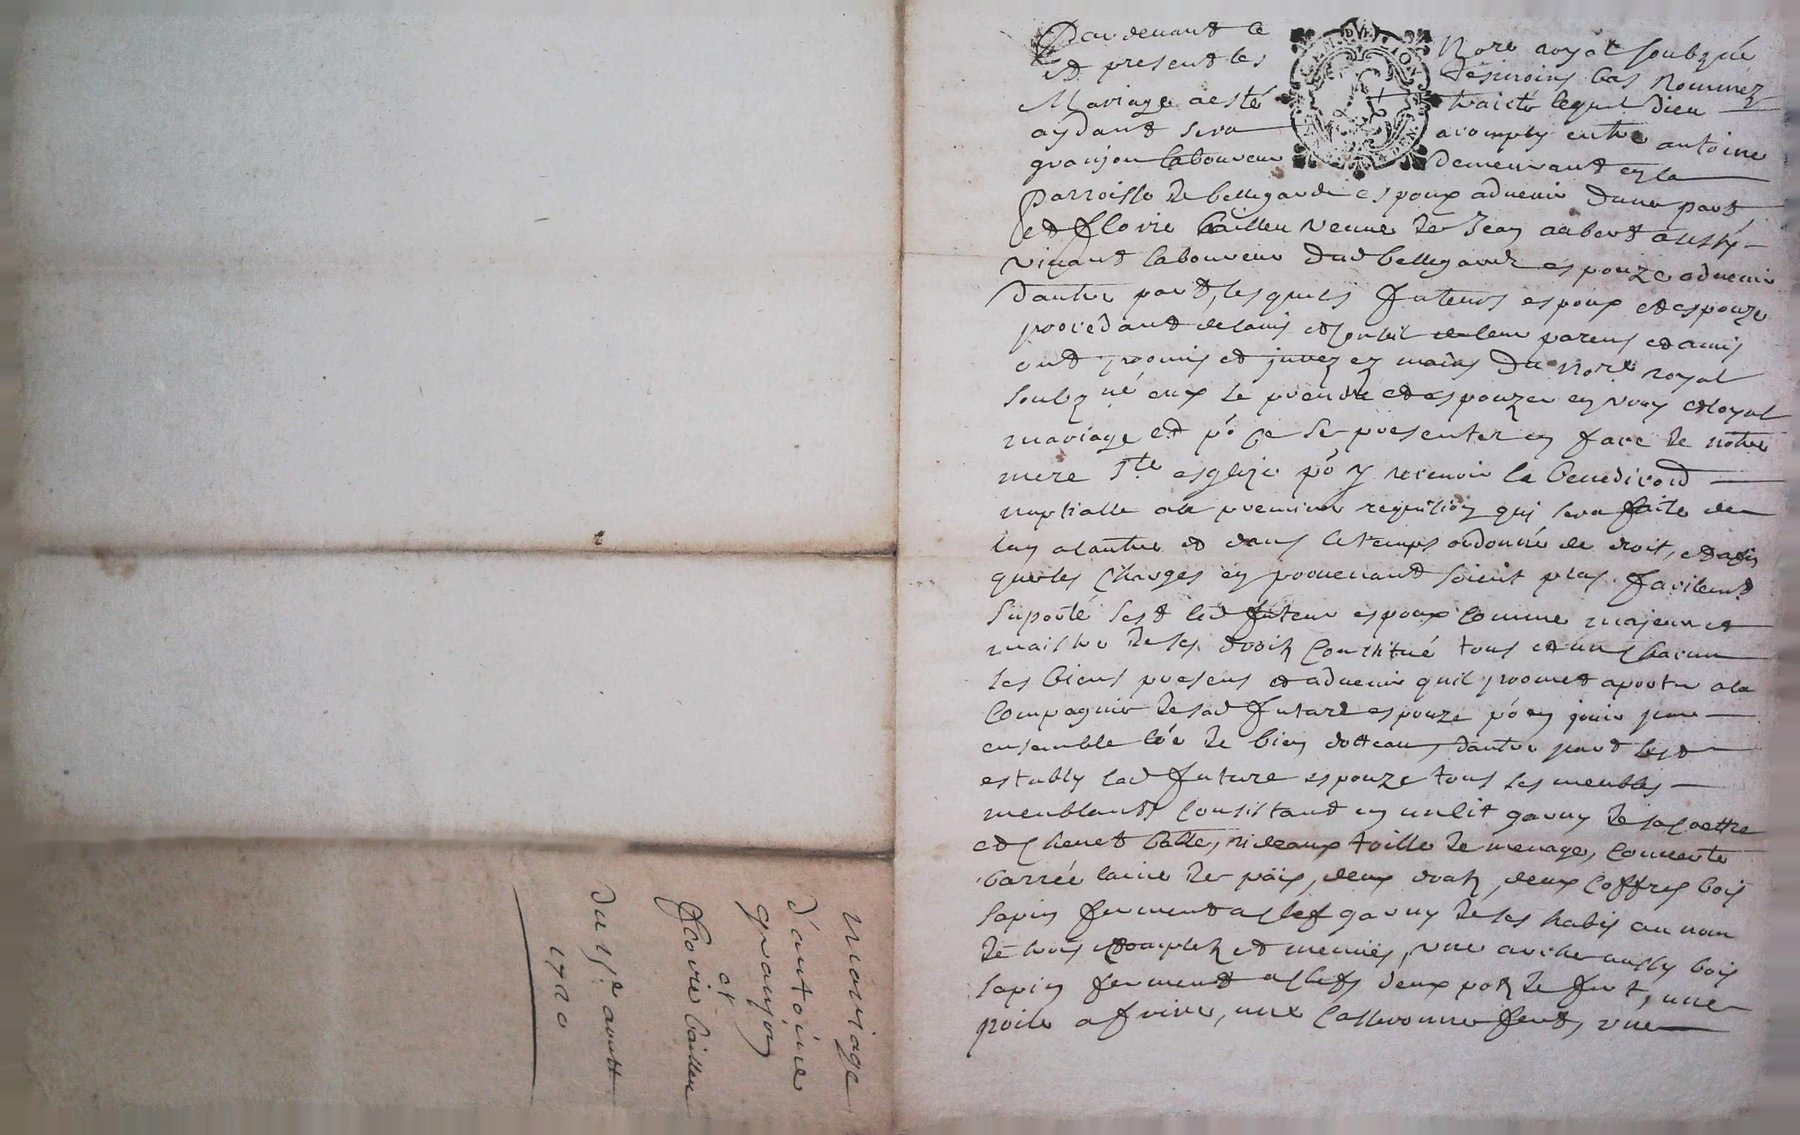 Par devant le Nore royal soubzné
et presentles tesmoins bas nommez
Mariage aesté traicté lequel dieu
aydant sera acomply entre antoine
granjon laboureur demeurant en la
Parroisse de bellegarde espoux advenir dune part
et florie Cailleu veuve de Jean aubert aussy
vivant laboureur dud bellegarde espouze advenir
dautre part, lesquels futeurs espoux et espouze
procedant de lavis et conseil de leur parens et amis
ont promis et jurez ez mains du Nore royal
soubzné eux se prendre et espouzer en vray et loyal
mariage et po ce se presenter en face de nostre
mere Ste esglize po y recevoir la benediction
nuptialle ala premiere requisition quy sera faite de
lun alautre et dans le temps ordonné de droit, et afin
que les charges en provenant soient plus facilemt
suporté sest led futeur espoux comme majeur et
maistre de ses droits constitué tous et uns chacuns
ses biens presens et advenir quil promet aporter ala
Compagnie de sad future espouze po en jouir par
ensemble des biens dottaux, dautre part sest
estably lad future espouze tous ses meubles
meublants consistant en un lit garny de sa coettre
et chevet balle, rideaux toille de menage, couverte
barrée laine de païs, deux draps, deux coffres bois
sapin fermant a clef garny de ses habis au nom
de trois complets et menuës, une arche aussy bois
sapin fermant a clefs deux pots de fert, une
poile a frire, une casseronne fert, une
mariage
d'antoine
granjon
et
florie Cailleu
du 15e aoust
1720